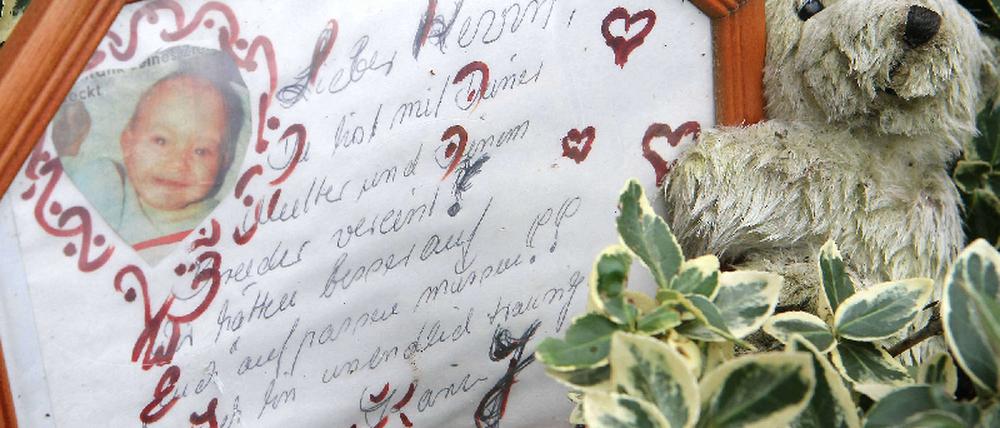 Lieber Kevin,
Du bist mit Deiner
Mutter und Deinem
Bruder vereint!
Wir hätten besser auf
Euch aufpassen müssen!!
Ich bin unendlich traurig